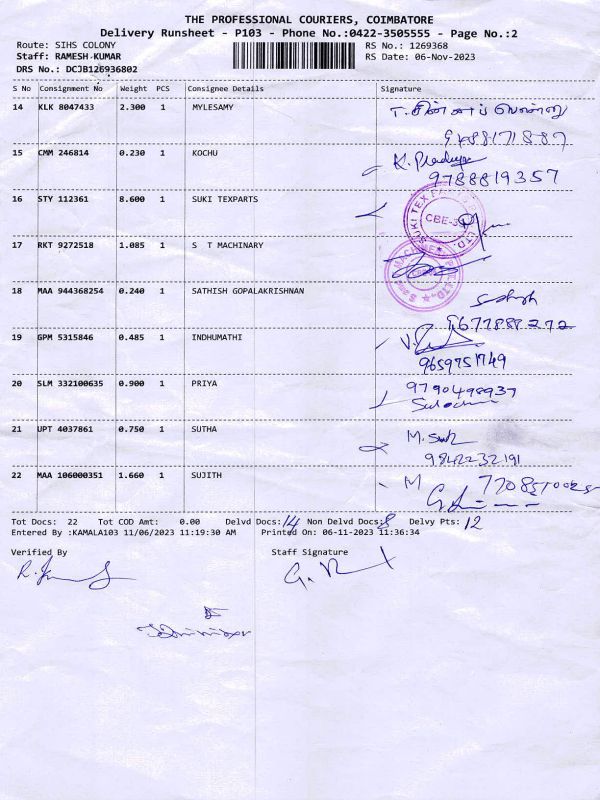 THE PROFESSIONAL COURIERS, COIMBATORE
Delivery Runsheet - P103 - Phone No.:0422-3505555 - Page No.:2
Route: SIHS COLONY
RS No.: 1269368
Staff: RAMESH-KUMAR
RS Date: 06-Nov-2023
DRS No.: DCJB126936802
S No Consignment No Weight PCS Consignee Details Signature
14 KLK 8047433 2.300 1 MYLESAMY
15 CMM 246814 0.230 1 KOCHU
9788819357
16 STY 112361 8.600 1 SUKI TEXPARTS
SUKI TEX
CBE-34
17 RKT 9272518 1.085 1 S T MACHINARY
18 MAA 944368254 0.240 1 SATHISH GOPALAKRISHNAN
19 GPM 5315846 0.485 1 INDHUMATHI
9659751749
20 SLM 332100635 0.900 1 PRIYA
9790498937
21 UPT 4037861 0.750 1 SUTHA
9842232191
22 MAA 106000351 1.660 1 SUJITH
Tot Docs: 22 Tot COD Amt: 0.00 Delvd Docs: 14 Non Delvd Docs: 8 Delvy Pts: 12
Entered By :KAMALA103 11/06/2023 11:19:30 AM Printed On: 06-11-2023 11:36:34
Verified By Staff Signature